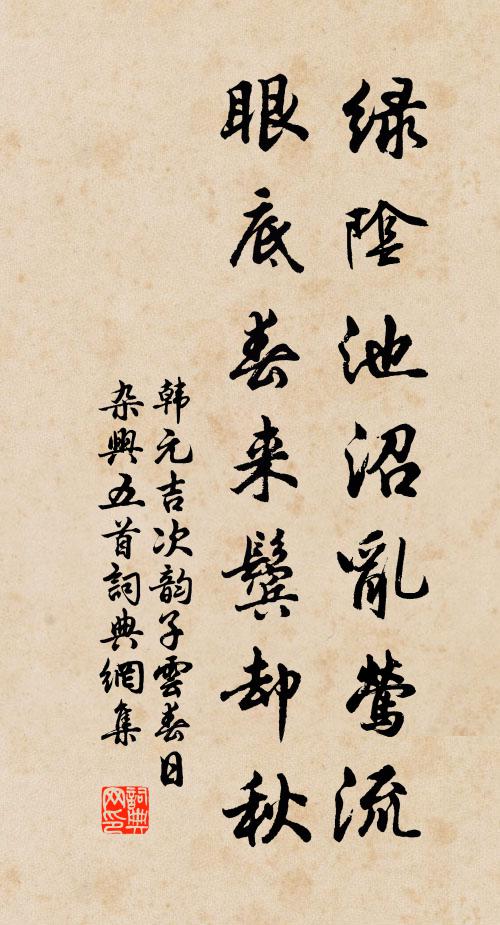 绿陰池沼亂莺流
眼底春来鬓却秋
韩元吉次韵子雲春日
杂興五首詞典網集
詞典
网印